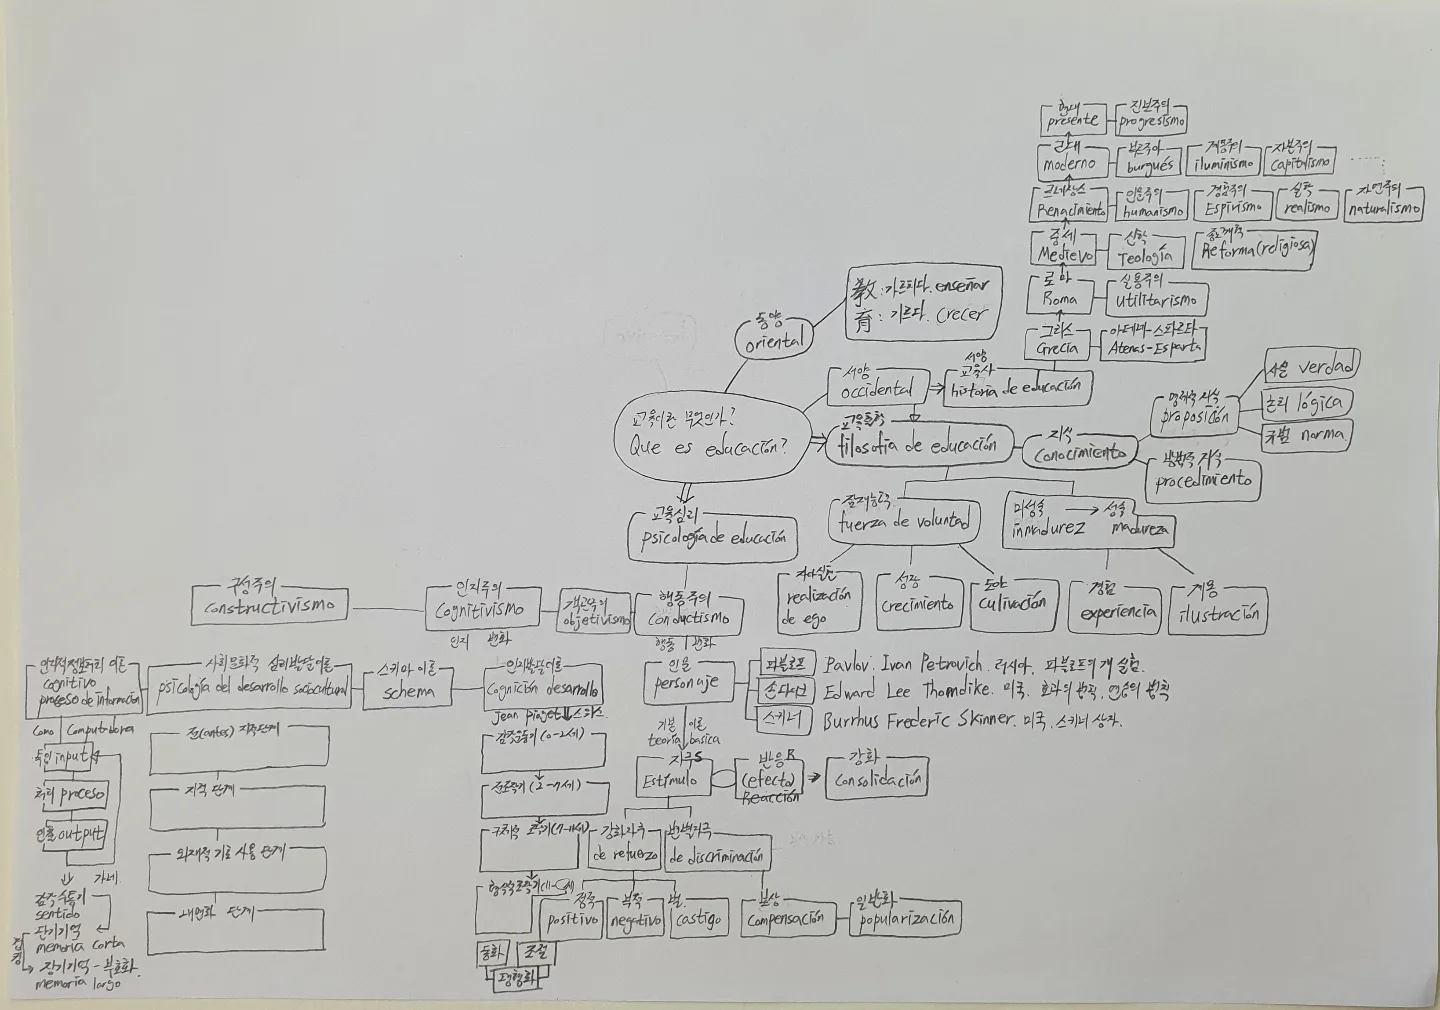 현대
presente
진보주의
progresismo
근대
moderno
부르주아
burgués
계몽주의
iluminismo
자본주의
capitalismo
르네상스
Renacimiento
인문주의
humanismo
경험주의
Espirismo
실학
realismo
자연주의
naturalismo
중세
Medievo
신학
Teología
종교개혁
Reforma(religiosa)
로마
Roma
실용주의
utilitarismo
그리스
Grecia
아테네-스파르타
Atenas-Esparta
동양
oriental
敎:가르치다. enseñar
育: 기르다. crecer
서양
occidental
서양
교육사
historia de educación
교육이란 무엇인가?
Que es educación?
교육철학
filosofía de educación
지식
conocimiento
명제적 지식
proposición
사실 verdad
논리 lógica
규범 norma.
방법적 지식
procedimiento
잠재능력
fuerza de voluntad
미성숙 → 성숙
inmadurez madureza
자아실현
realización
de ego
성장
crecimiento
도야
culivación
경험
experiencia
계몽
ilustración
교육심리
psicología de educación
구성주의
constructivismo
인지주의
cognitivismo
인지 변화
객관주의
objetivismo
행동주의
conductismo
행동 변화
인지적정보처리 이론
cognitivo
proceso de información
como computadorea
투입 input
처리 proceso
인출 output
감각수용기
sentido
단기기억
memoria corta
장기기억 - 부호화
memoria largo
사회문화적 심리발달이론
psicología del desarrollo sociocultural
전(antes) 지적단계
지적 단계
외재적 기호 사용 단계
내면화 단계
스키마 이론
schema
인지발달이론
Cognición desarrollo
jean piajet
감각운동기 (0-2세)
전조작기 (2-7세)
구체적 조작기(7-11세)
동화
조절
평형화
인물
personaje
파블로프
Pavlov. Ivan Petrovich. 러시아. 파블로프의 개 실험.
손다이크
Edward Lee Thorndike. 미국. 효과의 법칙. 연습의 법칙
스키너
Burrhus Frederic Skinner. 미국. 스키너 상자.
기본 이론
teoría basica
자극S
Estímulo
반응R
(efecto)
Reacción
강화
consolidación
강화자극
de refuerzo
변별자극
de discriminación
정적
positivo
부적
negativo
벌.
castigo
보상
compensación
일반화
popularización